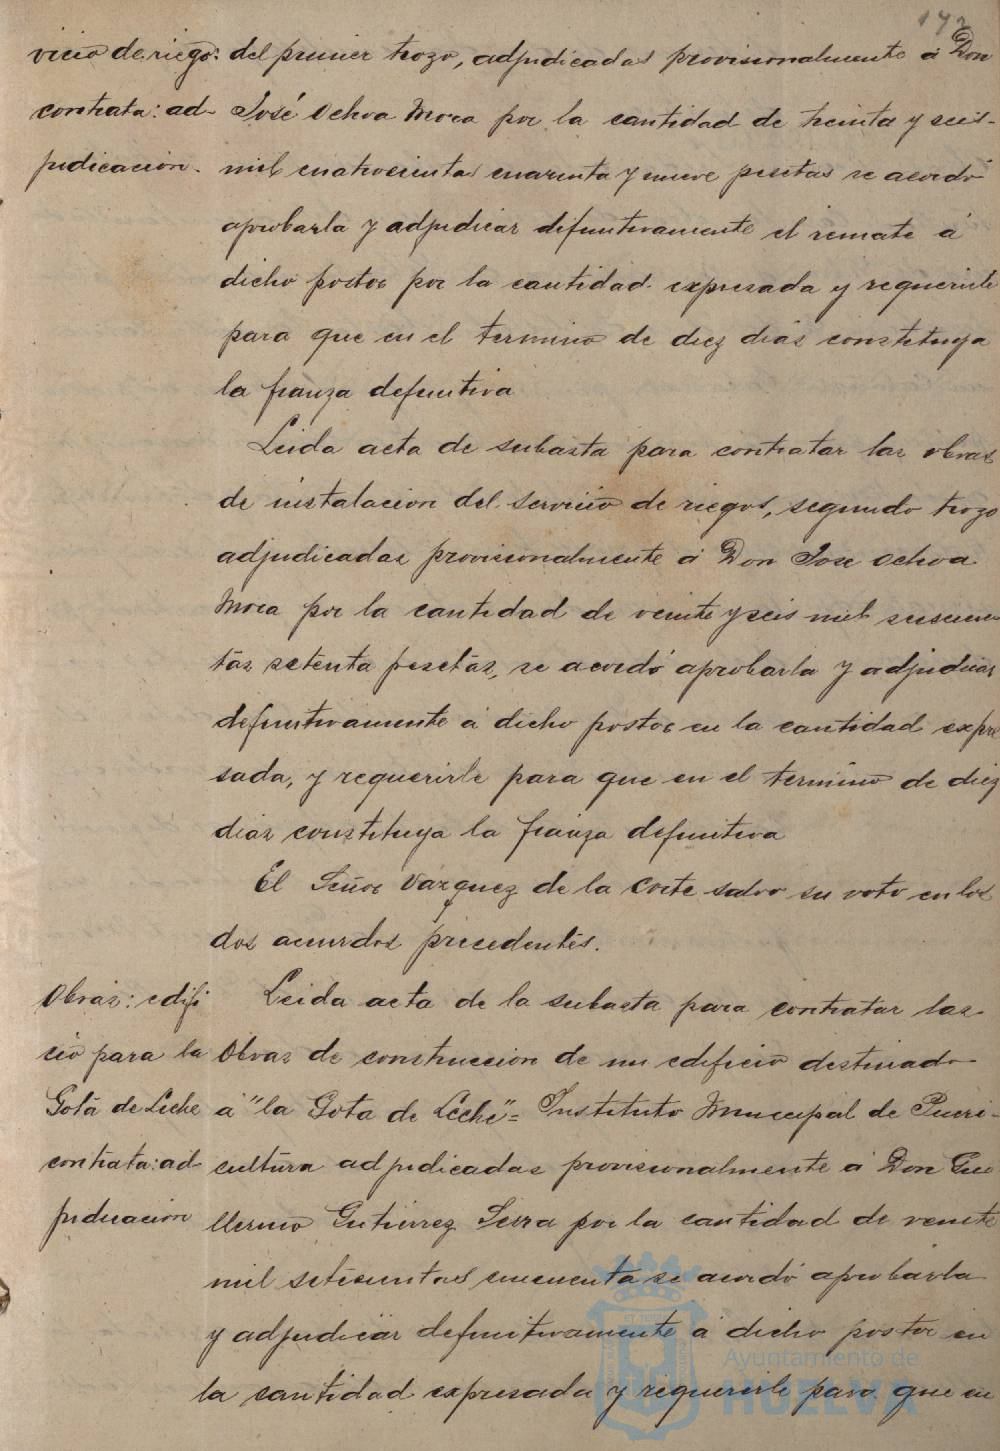 172
vicio de riego: del primer trozo, adjudicadas provisionalmente á Don
contrata: ad- José Ochoa Mora por la cantidad de treinta y seis-
judicacion. mil cuatrocientas cuarenta y nueve pesetas se acordó
aprobarla y adjudicar difinitivamente el remate á
dicho postor por la cantidad expresada y requerirle
para que en el termino de diez dias constituya
la fianza definitiva
Leida acta de subasta para contratar las obras
de instalacion del servicio de riegos, segundo trozo
adjudicadas provisionalmente á Don Jose Ochoa
Mora por la cantidad de veinte y seis mil seiscien
tas setenta pesetas, se acordó aprobarla y adjudicar
definitivamente á dicho postor en la cantidad expre
sada, y requerirle para que en el termino de diez
dias constituya la fianza definitiva
El Señor Vazquez de la Corte salvo su voto en los
dos acuerdos precedentes.
Obras: edifi Leida acta de la subasta para contratar las
cio para la Obras de construccion de un edificio destinado
Gota de Leche á "la Gota de Leche"= Instituto Municipal de Pueri-
contrata: ad cultura adjudicadas provisionalmente á Don Gui
judicacion llermo Gutierrez Serra por la cantidad de veinte
mil setecientas cincuenta se acordó aprobarla
y adjudicar definitivamente á dicho postor en
la cantidad expresada y requerirle para que en
Ayuntamiento de
HUELVA